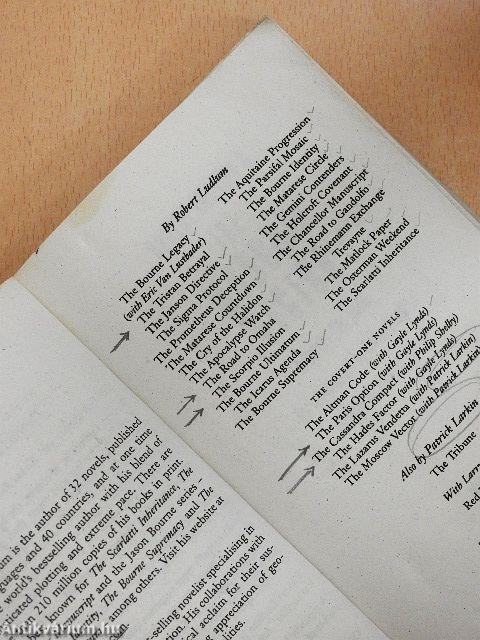 By Robert Ludlum
The Bourne Legacy
(with Eric Van Lustbader)
The Tristan Betrayal
The Janson Directive
The Sigma Protocol
The Prometheus Deception
The Matarese Countdown
The Cry of the Halidon
The Apocalypse Watch
The Road to Omaha
The Scorpio Illusion
The Bourne Ultimatum
The Icarus Agenda
The Bourne Supremacy
The Aquitaine Progression
The Parsifal Mosaic
The Bourne Identity
The Matarese Circle
The Gemini Contenders
The Holcroft Covenant
The Chancellor Manuscript
The Road to Gandolfo
The Rhinemann Exchange
Trevayne
The Matlock Paper
The Osterman Weekend
The Scarlatti Inheritance
THE COVERT-ONE NOVELS
The Altman Code (with Gayle Lynds)
The Paris Option (with Gayle Lynds)
The Cassandra Compact (with Philip Shelby)
The Hades Factor (with Gayle Lynds)
The Lazarus Vendetta (with Patrick Larkin)
The Moscow Vector (with Patrick Larkin
Also by Patrick Larkin
The Tribune
With Larr
Red
um is the author of 32 novels, published
guages and 40 countries, and at one time
world's bestselling author with his blend of
plotting and extreme pace. There are
210 million copies of his books in print.
known for The Scarlatti Inheritance, The
Manuscript and the Jason Bourne series –
The Bourne Supremacy and The
among others. Visit his website at
-selling novelist specialising in
tion. His collaborations with
cal acclaim for their sus-
g appreciation of geo-
lities.
Antikvarium.hu